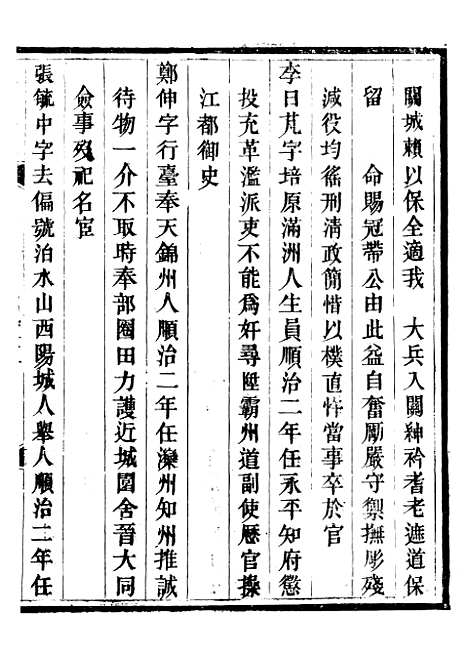 關城賴以保全適我　大兵入關紳衿耆老遮道保
留　命賜冠帶公由此益自奮勵嚴守禦撫彫殘
減役均徭刑清政簡惜以樸直忤當事卒於官
李日芃字培原滿洲人生員順治二年任永平知府懲
投充革濫派吏不能為奸尋陞霸州道副使歷官操
江都御史
鄭伸字行臺奉天錦州人順治二年任灤州知州推誠
待物一介不取時奉部圈田力護近城園舍晉大同
僉事歿祀名宦
張毓中字去偏號泊水山西陽城人舉人順治二年任